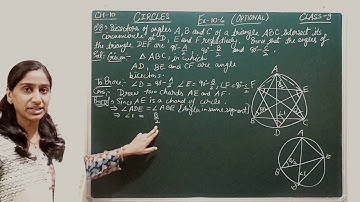 CH-10 CIRCLES Ex-10.6 (OPTIONAL) CLASS-9
Q8: Bisectors of angles A, B and C of a triangle ABC intersect its
circumcircle at D, E and F respectively. Prove that the angles of
the triangle DEF are 90°-A/2, 90°-B/2 and 90°-C/2.
Sol: Given:- △ABC, in which
AD, BE and CF are angle
bisectors.
To Prove:- ∠D = 90°-A/2, ∠E = 90°-B/2, ∠F = 90°-C/2
Draw two chords AE and AF.
Proof:- Since AE is a chord of circle
⇒ ∠ADE = ∠ABE [Angles in same segment]
⇒ ∠1 = B/2
A
F
E
B
C
D
A
E
B
D
B/2
∠1